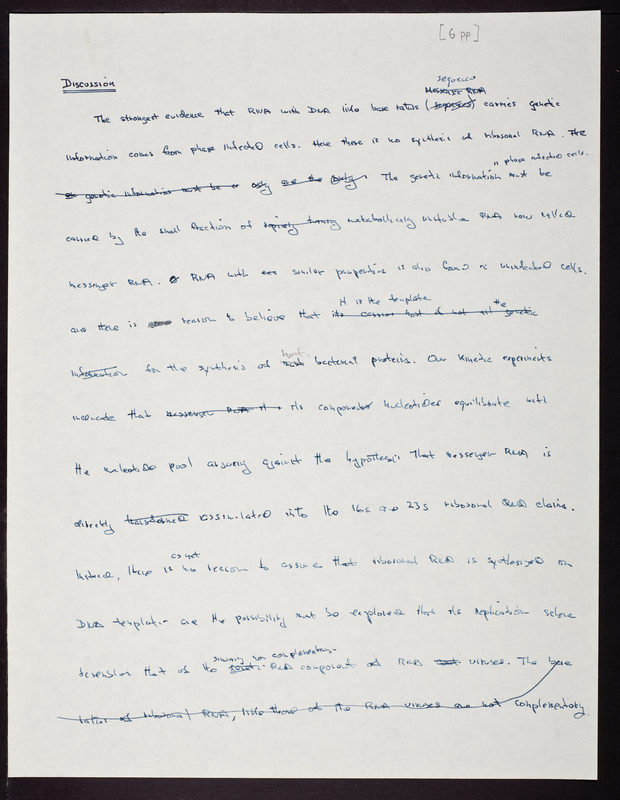 [6 pp]
Discussion
sequence
Messenger RNA
The strongest evidence that RNA with DNA like base ratios (sequences) carries genetic
information comes from phage infected cells. Here there is no synthesis of ribosomal RNA. The
in phage infected cells.
genetic information must be only The genetic information must be
carried by the small fraction of rapidly turning metabolically unstable RNA now called
messenger RNA. RNA with similar properties is also found in uninfected cells,
it is the template
the
and there is reason to believe that its carries most if not all genetic
host
information for the synthesis of most bacterial proteins. Our kinetic experiments
indicate that messenger RNA it its component nucleotides equilibrate with
the nucleotide pool arguing against the hypothesis that messenger RNA is
directly transformed assimilated into the 16s and 23s ribosomal RNA chains.
as yet
Instead, there is no reason to assume that ribosomal RNA is synthesized on
DNA templates and the possibility must be explored that its replication scheme
seemingly non complementary
resembles that of the RNA component of RNA viruses. The base
ratios of ribosomal RNA, like those of the RNA viruses are not complementary.